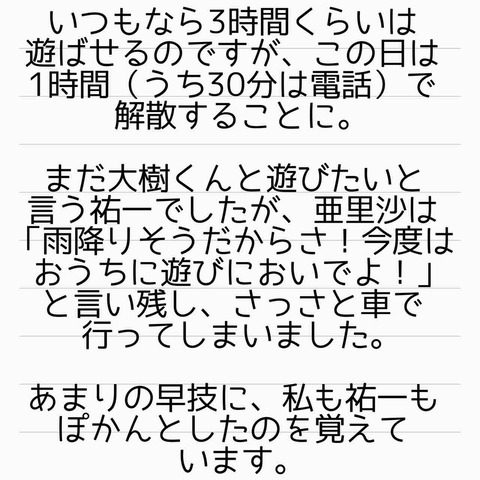 いつもなら3時間くらいは
遊ばせるのですが、この日は
1時間（うち30分は電話）で
解散することに。
まだ大樹くんと遊びたいと
言う祐一でしたが、亜里沙は
「雨降りそうだからさ！今度は
おうちに遊びにおいでよ！」
と言い残し、さっさと車で
行ってしまいました。
あまりの早技に、私も祐一も
ぽかんとしたのを覚えて
います。